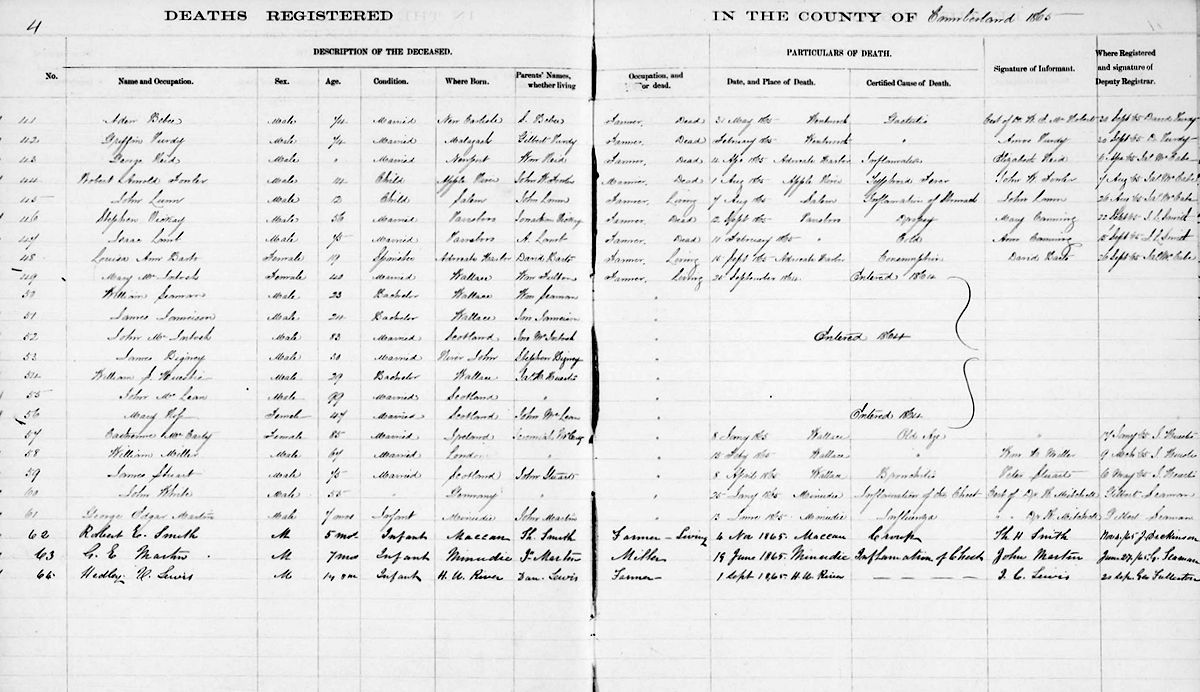 4
DEATHS REGISTERED IN THE COUNTY OF Cumberland 1865
DESCRIPTION OF THE DECEASED. PARTICULARS OF DEATH.
No. Name and Occupation. Sex. Age. Condition. Where Born. Parents' Names, whether living Occupation, and or dead. Date, and Place of Death. Certified Cause of Death. Signature of Informant. Where Registered and signature of Deputy Registrar.
41 Male 74 Married New Carlisle Farmer Dead 31 May 1865 Gastritis 20 Sept 65 David Purdy
42 Griffin Purdy Male 74 Married Malagash Gilbert Purdy Farmer. Dead February 1865 " Amos Purdy 20 Sept 65 D. Purdy
43 George Reid Male " Married Newport Wm Reid Farmer. Dead 4 Apr 1865 Advocate Harbor Inflamation Elizabeth Reid
44 Robert Arnold Fowler Male 14 Child Apple River John W Fowler Mariner. Dead 1 Aug 1865 Apple River Fever John W. Fowler 7 Aug 65
45 John Lunn Male 2 Child Salem John Lunn Farmer. Living 7 Aug 1865 Salem Inflamation of Stomach John Lunn 26 Aug 65
46 Stephen Male 56 Married Parrsboro Jonathan Farmer. Dead 2 Sept 1865 Parrsboro Dropsy Mary Canning 22 Sept 65
47 Isaac Lamb Male 75 Married Parrsboro A. Lamb Farmer. Dead 11 February 1865 " Cold Ann Canning 15 Sept 65
48 Louisa Ann Female 19 Spinster Advocate Harbor David Farmer. Living 15 Sept 1865 Advocate Harbor Consumption David 26 Sept 65
49 Mary McIntosh Female 40 Married Wallace Wm Fulton Farmer. Living 20 September 1864 Entered 1864
50 William Seaman Male 23 Bachelor Wallace Wm Seaman "
51 James Jamieson Male 24 Bachelor Wallace Jas Jamieson "
52 John McIntosh Male 83 Married Scotland Jno McIntosh " Entered 1864
53 James Bigney Male 30 Married River John Stephen Bigney "
54 William J. Huestis Male 29 Bachelor Wallace Huestis "
55 John McLean Male 99 Married Scotland " "
56 Mary Female 47 Married Scotland John McLean " Entered 1864
57 Catherine McCarty Female 85 Married Ireland Jeremiah McCarty " 8 Jany 1865 Wallace Old Age " 17 Jany 65 J. Huestis
58 William Miller Male 67 Married London " " 15 Feby 1865 Wallace " Miller 9 Mch 65 J. Huestis
59 James Stuart Male 75 Married Scotland John Stuart " 8 April 1865 Wallace Bronchitis Peter Stuart 6 May 65 J. Huestis
60 John White Male 55 " Germany " " 25 Jany 1865 Minudie Inflamation of the Chest Cert of Dr Mitchell Gilbert Seaman
61 George Edgar Martin Male 7 mos Infant Minudie John Martin " 13 June 1865 Minudie Influenza " Dr Mitchell Gilbert Seaman
62 Robert E. Smith M 5 mos Infant Maccan Th. Smith Farmer Living 6 Nov 1865 Maccan Croup Th H Smith J. Dickinson
63 G. E Martin M 7 mos Infant Minudie J. Martin Miller 18 June 1865 Minudie Inflamation of Chest John Martin June 27, 65 G. Seaman
66 Hedley W. Lewis M Infant H. W. River Dan. Lewis Farmer 1 Sept 1865 H. W. River — — — — J. C. Lewis 20 Sep. Geo Fullerton